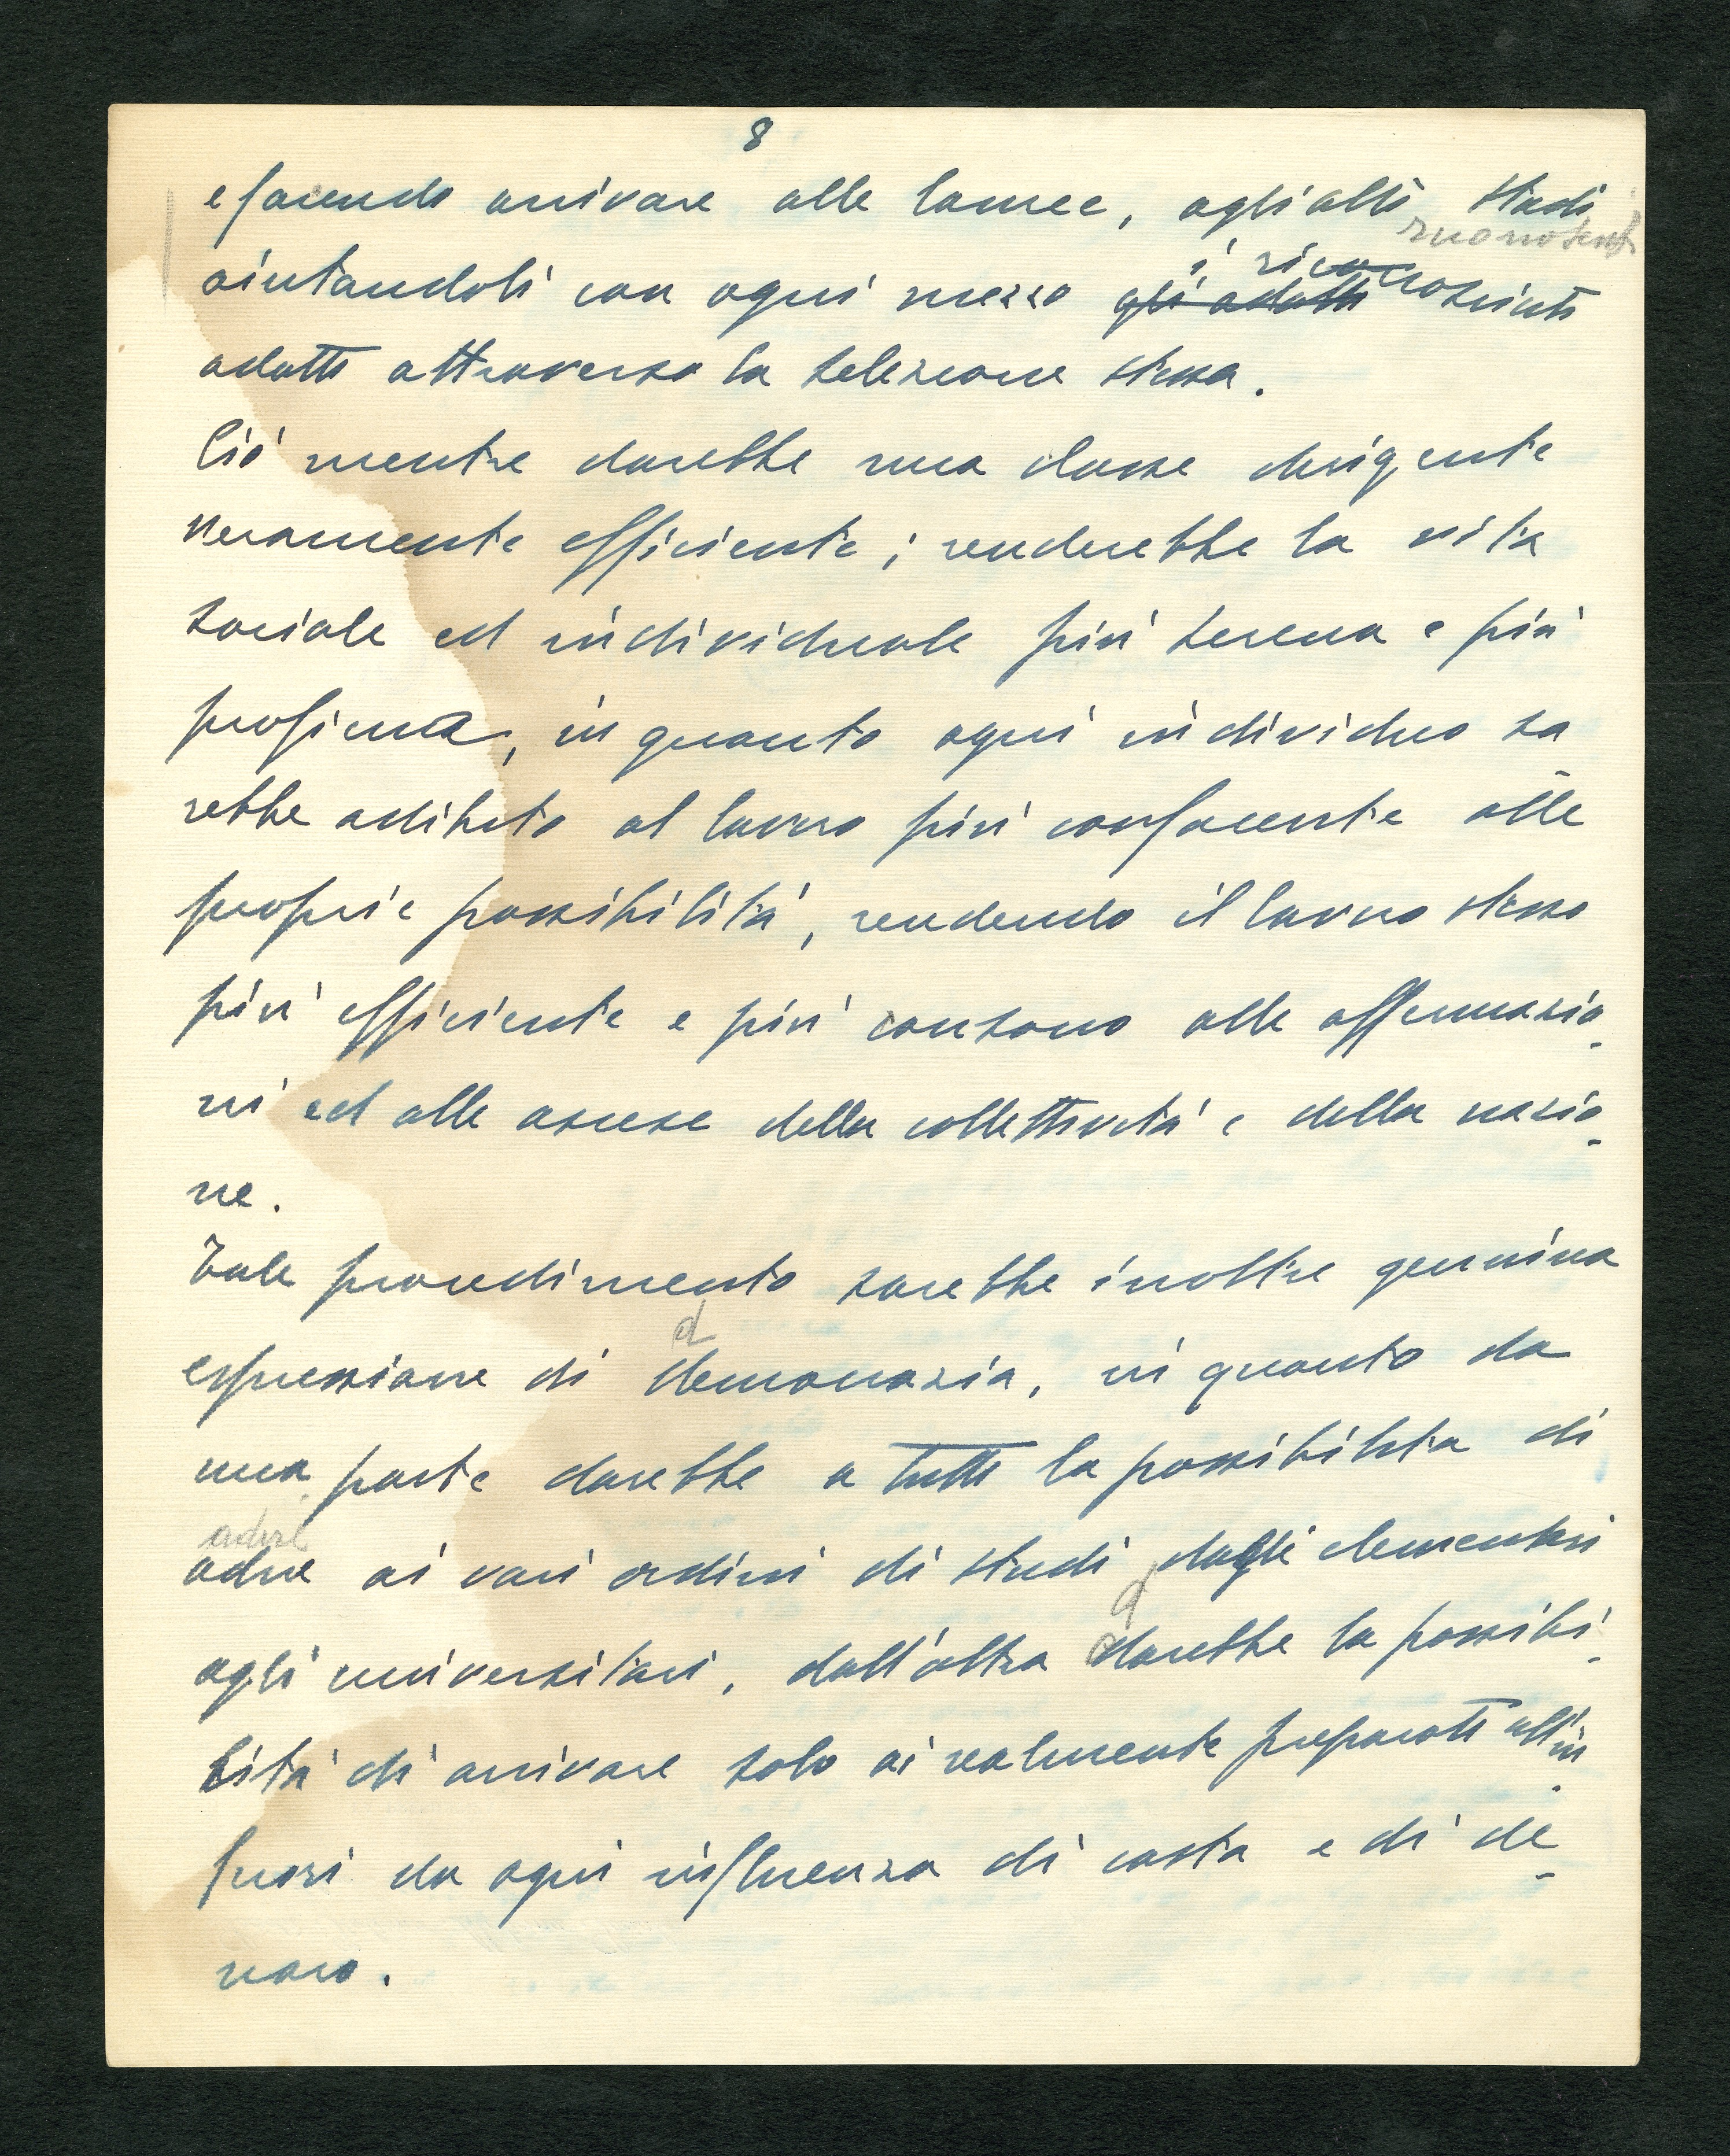 8
e facendo arrivare alle lauree, agli alti studi
riconosciuti
i riconosciuti
aiutandoli con ogni mezzo gli adatti
adatti attraverso la selezione stessa.
Ciò mentre darebbe una classe dirigente
veramente efficiente; renderebbe la vita
sociale ed individuale più serena e più
proficua, in quanto ogni individuo sa
rebbe adibito al lavoro più confacente alle
proprie possibilità, rendendo il lavoro stesso
più efficiente e più consono alle affermazio-
ni ed alle ascese della collettività e della nazio-
ne.
Tale procedimento sarebbe inoltre genuina
d
espressione di democrazia, in quanto da
una parte darebbe a tutti la possibilità di
adire
adire ai vari ordini di studi dagli elementari
agli universitari, dall'altra darebbe la possibi-
lità di arrivare solo ai realmente preparati all'in-
fuori da ogni influenza di casta e di de-
naro.